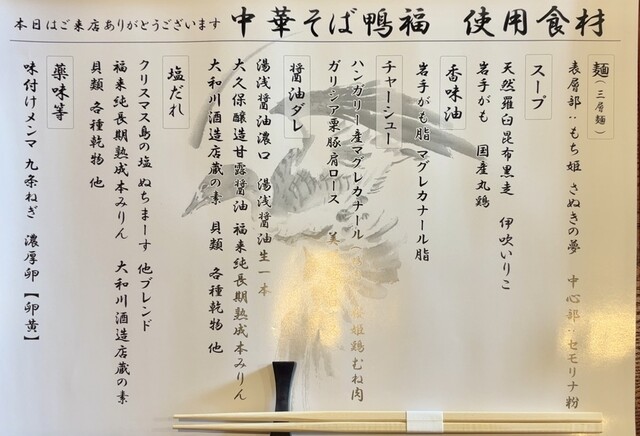 本日はご来店ありがとうございます
中華そば鴨福 使用食材
麺(三層麺)
表層部:もち姫 さぬきの夢 中心部:セモリナ粉
スープ
天然羅臼昆布黒走 伊吹いりこ
岩手がも 国産丸鶏
香味油
岩手がも脂 マグレカナール脂
チャーシュー
ハンガリー産マグレカナール 姫鶏むね肉
ガリシア栗豚肩ロース
醤油ダレ
湯浅醤油濃口 湯浅醤油生一本
大久保醸造甘露醤油 福来純長期熟成本みりん
大和川酒造店蔵の素 貝類 各種乾物 他
塩だれ
クリスマス島の塩 ぬちまーす 他ブレンド
福来純長期熟成本みりん 大和川酒造店蔵の素
貝類 各種乾物 他
薬味等
味付けメンマ 九条ねぎ 濃厚卵【卵黄】